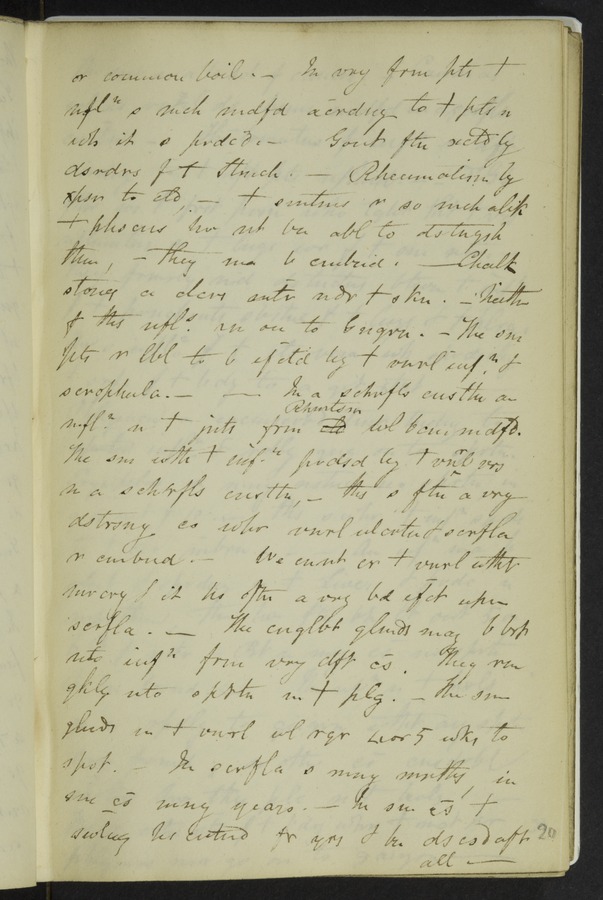 or common boil. — In vry frm pts †
nfl.n s mch mdfd acrdng to † pts n
wh it s prdcd. — Gout ftn xctd by
dsrdrs f † Stmch. — Rheumatism by
xpsr to cld, — † smtms r so mch alik
† phscns hv nt bn abl to dstngsh
thm, — they ma b cmbnd. — Chalk
stones a clcrs mtr ndr † skn. — Neithr
f ths nfl.s
pts r lbl to b fctd by † vnrl inf.n &
scrophula. — — In a schrfls cnsttn an
nfl.n n † jnts frm Rheumtsm wl bcm mdfd.
The sm wth † inf.n prdsd by † vnrl vrs
n a schrfls cnsttn, — ths s ftn a vry
dstrsng cs whr vnrl ulcrtn & scrfla
r cmbnd. — We cnnt cr † vnrl wtht
mrcry & it hs oftn a vry bd efct upn
scrfla. — The cnglbt glnds may b brt
nto inf.n frm vry dft cs. They rn
qkly nto sprtn in † plg. — The sm
glnds in † vnrl wl rqr 4 or 5 wks to
spt. — In scrfla s mny mnths, in
sme cs mny years. — In sm cs †
swlng hs cntnd fr yrs & bn dscsd aftr
all —
20